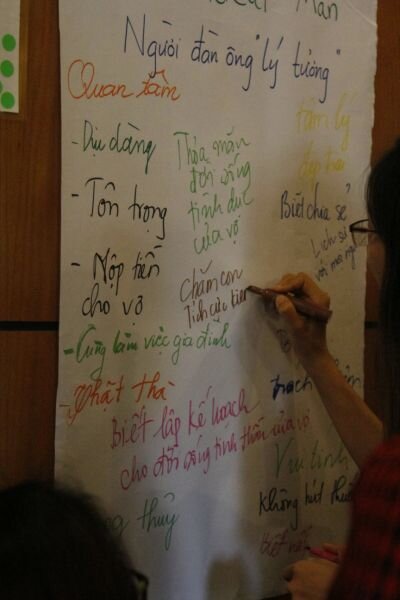 Man
Người đàn ông "lý tưởng"
Quan tâm
- Dịu dàng
- Tôn trọng
- Nộp tiền
cho vợ
- Cùng làm việc gia đình
- Thật thà
Thỏa mãn
đời sống
tình dục
của vợ
Chăm con
Tích cực
tâm lý
đẹp trai
Biết chia sẻ
Lịch sự
với mọi
Biết lập kế hoạch
cho đời sống tinh thần của vợ
thủy
Vui tính
Không hút thuốc
Biết